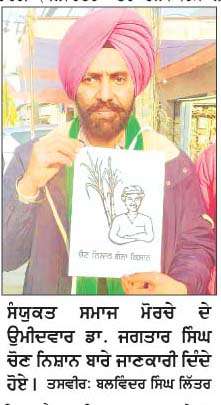 ਚੋਣ ਨਿਸ਼ਾਨ ਗੰਨਾ ਕਿਸਾਨ
ਸੰਯੁਕਤ ਸਮਾਜ ਮੋਰਚੇ ਦੇ
ਉਮੀਦਵਾਰ ਡਾ. ਜਗਤਾਰ ਸਿੰਘ
ਚੋਣ ਨਿਸ਼ਾਨ ਬਾਰੇ ਜਾਣਕਾਰੀ ਦਿੰਦੇ
ਹੋਏ। ਤਸਵੀਰ: ਬਲਵਿੰਦਰ ਸਿੰਘ ਲਿੱਤਰ